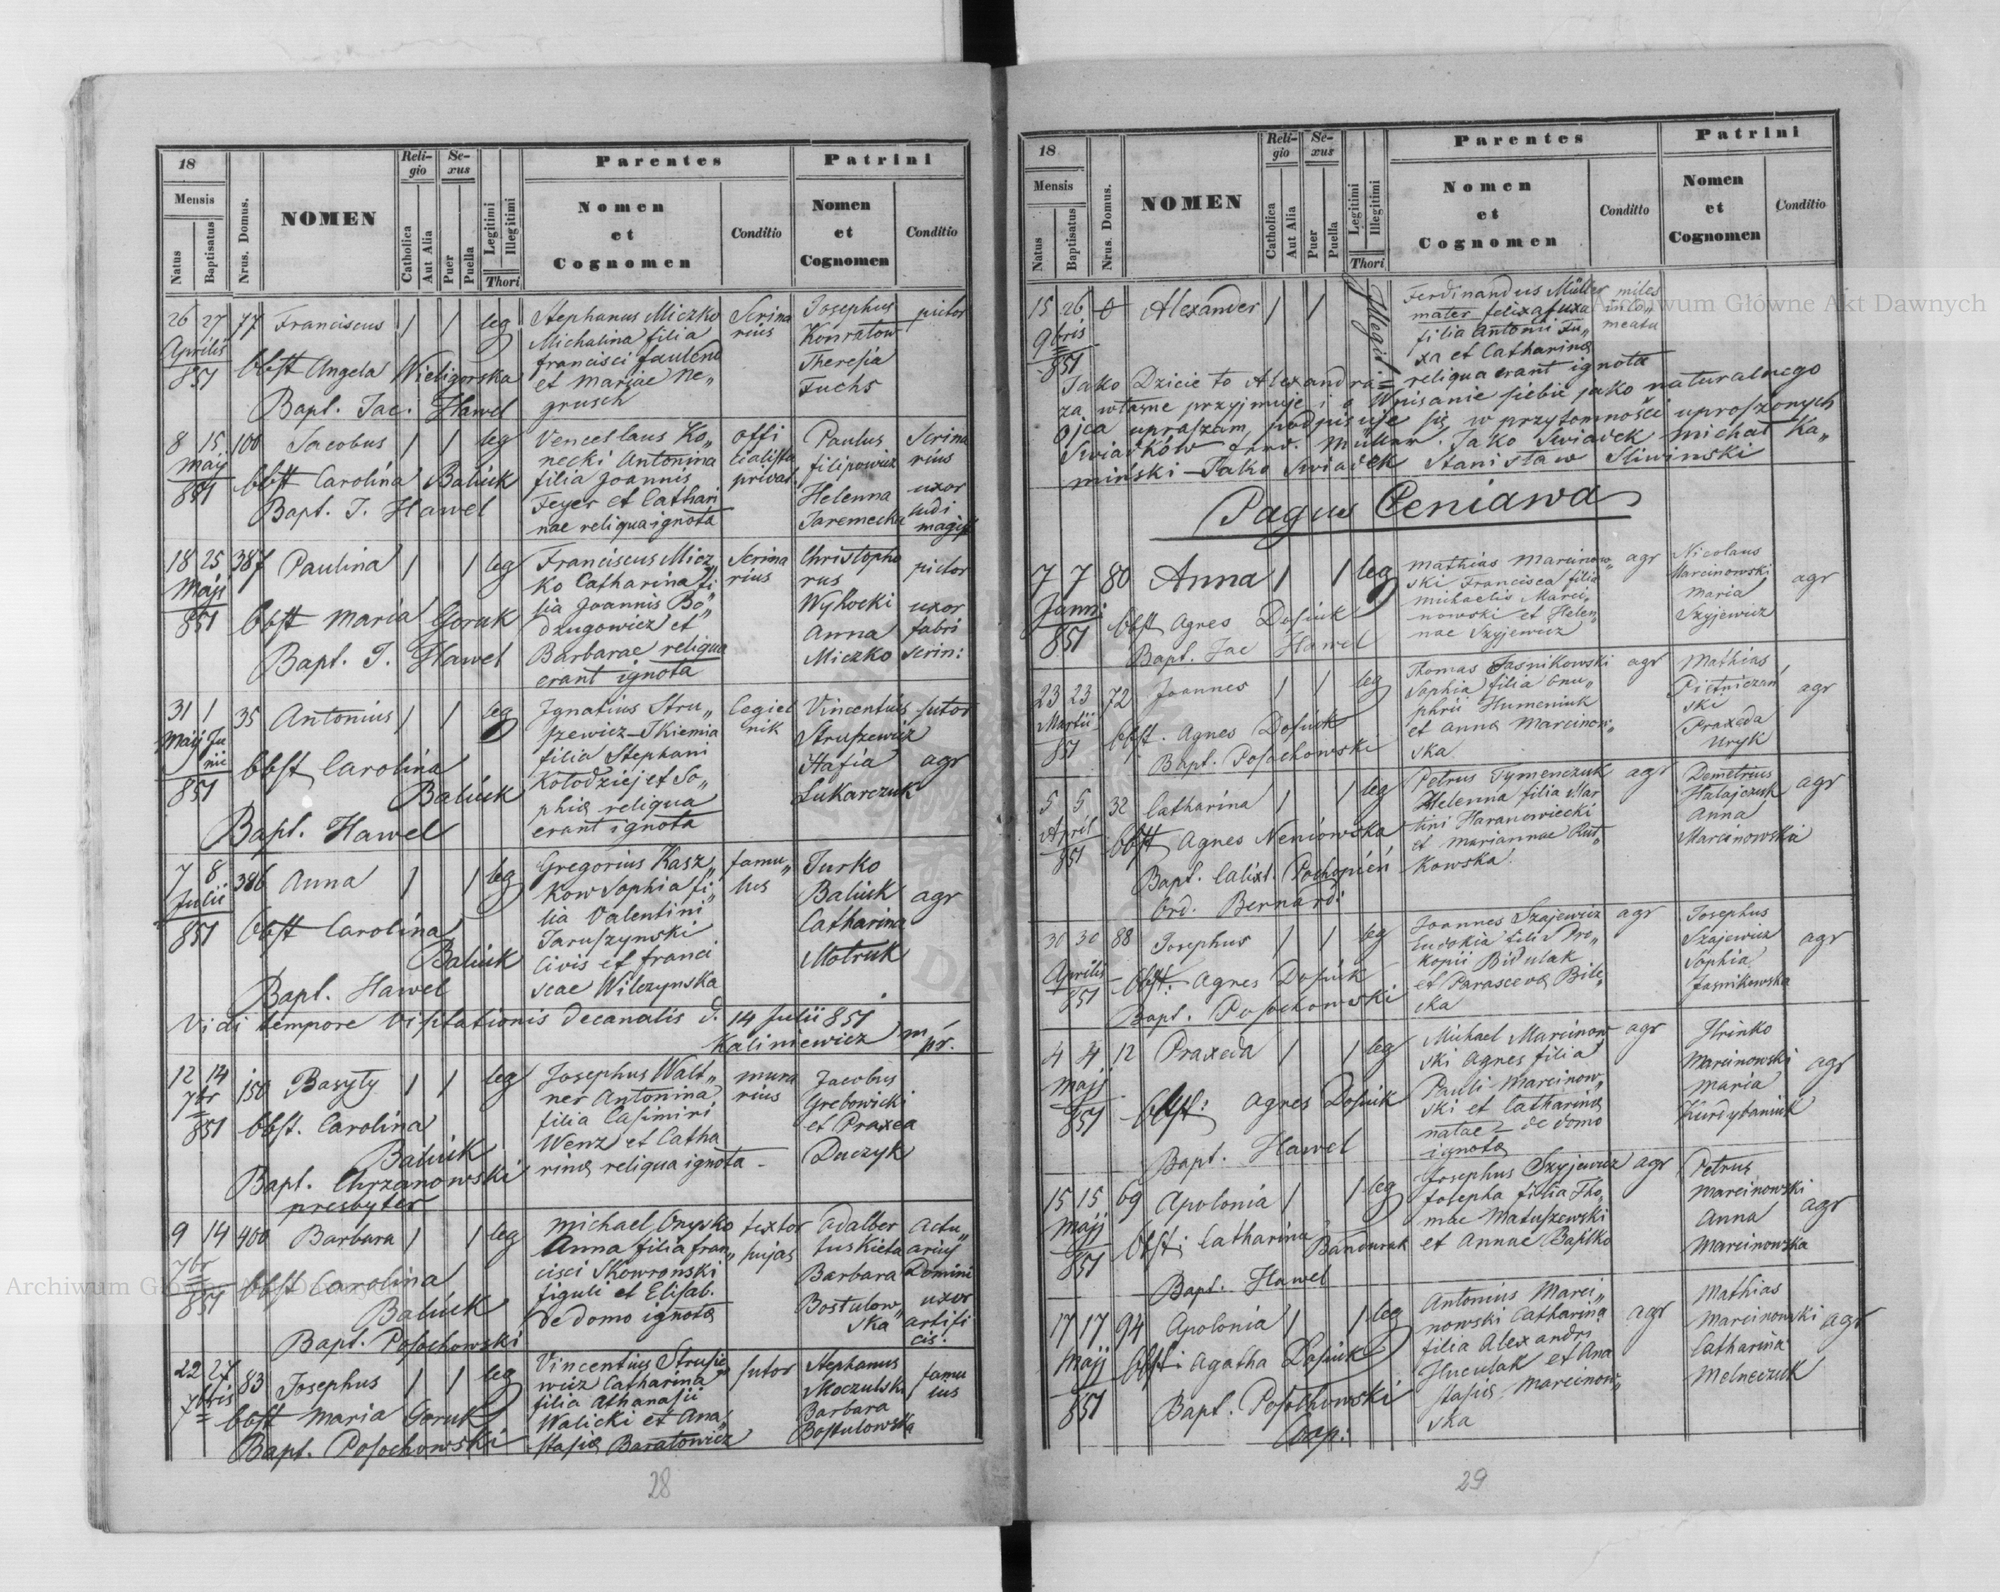 18
Mensis
Natus
Baptisatus
Nrus. Domus.
NOMEN
Reli-
gio
Catholica
Aut Alia
Se-
xus
Puer
Puella
Legitimi
Illegitimi
Thori
Parentes
Nomen
et
Cognomen
Conditio
Patrini
Nomen
et
Cognomen
Conditio
26 27 77 Franciscus 1 1 leg
Aprilis
851 obst Angela Wieligorska
Bapt. Jac. Hawel
Stephanus Miczko
Michalina filia
francisci
et Mariae Ne„
grusch
Scrina
rius
Josephus
Konratow
Theresia
Fuchs
pictor
8 15 100 Jacobus 1 1 leg
Maij
851 obst Carolina Baliuk
Bapt. J. Hawel
Venceslaus Ko„
necki Antonina
filia Joannis
Feyer et Cathari
nae reliqua ignota
offi
cialista
privat.
Paulus
filipowicz
Helenna
Jaremecka
Scrina
rius
uxor
ludi
magist
18 25 387 Paulina 1 1 leg
Maji
851 obst Maria Goruk
Bapt. J. Hawel
Franciscus Micz„
ko Catharina fi„
lia Joannis Bo„
dzugowicz et
Barbarae reliqua
erant ignota
Scrina
rius
Christopho
rus
Wysocki
Anna
Miczko
pictor
uxor
fabri
scrin:
31 1 35 Antonius 1 1 leg
Maij Ju
nii
851 obst Carolina
Baliuk
Bapt. Hawel
Ignatius Stru„
szewicz
filia Stephani
Kolodziej et So„
phia reliqua
erant ignota
Cegiel
nik
Vincentius
Struszewicz
Stasia
Lukarczuk
sutor
agr
7 8 386 Anna 1 1 leg
Julii
851 obst Carolina
Baliuk
Bapt. Hawel
Gregorius Kasz„
kow Sophia fi„
lia Valentini
Jaruszynski
Civis et Franci
scae Wilczynska
famu„
lus
Jurko
Baliuk
Catharina
Motruk
agr
Vidi tempore visitationis decanalis d. 14 Julii 851.
Kaliniewicz mpr.
12 14 150 Basyly 1 1 leg
7br
851 obst. Carolina
Baliuk
Bapt. Chrzanowski
presbyter
Josephus Walt„
ner Antonina
filia Casimiri
Wenz et Catha
rina reliqua ignota
mura
rius
Jacobus
Grebowicki
et Praxea
Duczyk
9 14 400 Barbara 1 1 leg
7br
851 obst Carolina
Baliuk
Bapt. Posochowski
Michael Onysko
Anna filia fran„
cisci Skowronski
figuli et Elisab.
de domo ignota
textor
hujas
Adalber
tus Kieta
Barbara
Bostulow„
ska
Actu„
arius
Domini
uxor
artifi
cis:
22 27 83 Josephus 1 1 leg
7bris
obst Maria Goruk
Bapt. Posochowski
Vincentius Strusie
wicz Catharina
filia Athanasii
Walicki et Ana„
stasia Baratowicz
sutor
Stephanus
Moczulski
Barbara
Bostulowska
famu
lus
28
18
Mensis
Natus
Baptisatus
Nrus. Domus.
NOMEN
Reli-
gio
Catholica
Aut Alia
Se-
xus
Puer
Puella
Legitimi
Illegitimi
Thori
Parentes
Nomen
et
Cognomen
Conditto
Patrini
Nomen
et
Cognomen
Conditio
15 26 0 Alexander 1 1 Illegit
9bris
851
Ferdinandus Müller miles
mater felixa fuxa
filia Antonii Fu„
xa et Catharina
reliqua erant ignota
Jako Dziecie to Alexandra =
za własne przyjmuje i o Wpisanie siebie jako naturalnego
ojca upraszam, podpisuje się w przytomności uproszonych
Swiadków Ferd. Müller. Jako Swiadek Michał Ka„
miński – Jako Swiadek Stanisław Sliwinski
Pagus Ceniawa
7 7 80 Anna 1 1 leg
Janu:
851 obst Agnes Dosiuk
Bapt. Jac Hawel
Mathias Marcinow„
ski Francisca filia
Michaelis Marci„
nowski et Helen„
nae Szyjewicz
agr
Nicolaus
Marcinowski
Maria
Szyjewicz
agr
23 23 72 Joannes 1 1 leg
Martii
851 obst. Agnes Dosiuk
Bapt. Posochowski
Thomas Jasnikowski
Sophia filia Onu„
phrii Humeniuk
et Anna Marcinow„
ska
agr
Mathias
Pietniczań
ski
Praxeda
Uryk
agr
5 5 32 Catharina 1 1 leg
April
851 obst Agnes Neniowska
Bapt. Calixt. Pochopień
Ord. Bernard:
Petrus Tymenczuk
Helenna filia Mar
tini Haranowiecki
et Mariannae Rut„
kowska
agr
Demetrius
Halajczuk
Anna
Marcinowska
agr
30 30 88 Josephus 1 1 leg
Aprilis
851 Obst: Agnes Dosiuk
Bapt. Posochowski
Joannes Szajewicz
Eudokia filia Pro„
kopii Bidulak
et Parasceva Bile„
cka
agr
Josephus
Szajewicz
Sophia
Jasnikowska
agr
4 4 12 Praxeda 1 1 leg
Maji
851 Obst: Agnes Dosiuk
Bapt. Hawel
Michael Marcinow
ski Agnes filia
Pauli Marcinow„
ski et Catharina
natae – de domo
ignota
agr
Hrinko
Marcinowski
Maria
Kurdybaniuk
agr
15 15 69 Apolonia 1 1 leg
Maji
851 Obst: Catharina Bandurak
Bapt. Hawel
Josephus Szyjewicz
Josepha filia Tho„
mae Matuszewski
et Annae Bapiko
agr
Petrus
Marcinowski
Anna
Marcinowska
agr
17 17 94 Apolonia 1 1 leg
Maji
851 obst: Agatha Dasiuk
Bapt. Posochowski
Coop:
Antonius Marci„
nowski Catharina
filia Alexandri
Huculak et Ana
stasia Marcinow„
ska
agr
Mathias
Marcinowski
Catharina
Melneczuk
agr
29
Archiwum Główne Akt Dawnych
Archiwum Główne Akt Dawnych